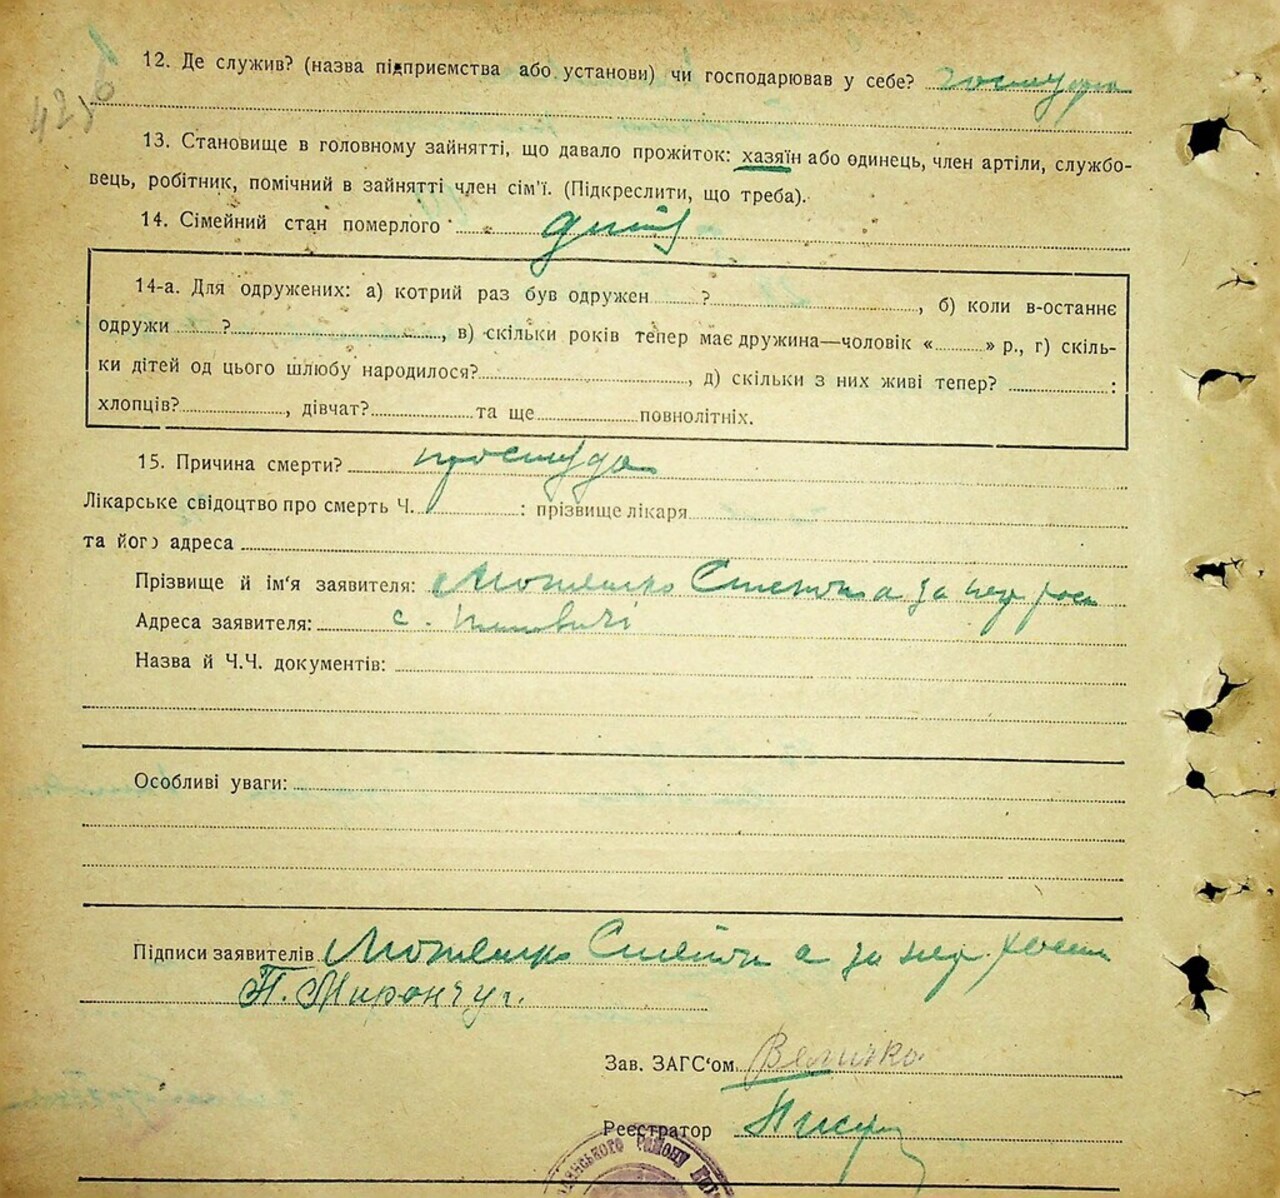 12. Де служив? (назва підприємства або установи) чи господарював у себе? господар
13. Становище в головному зайнятті, що давало прожиток: хазяїн або одинець, член артіли, службо-
вець, робітник, помічний в зайнятті член сім'ї. (Підкреслити, що треба).
14. Сімейний стан померлого
14-а. Для одружених: а) котрий раз був одружен ? , б) коли в-останнє
одружи ? , в) скільки років тепер має дружина—чоловік « » р., г) скіль-
ки дітей од цього шлюбу народилося? , д) скільки з них живі тепер? :
хлопців? , дівчат? та ще повнолітніх.
15. Причина смерти? простуда
Лікарське свідоцтво про смерть Ч. : прізвище лікаря
та його адреса
Прізвище й ім'я заявителя: а за
Адреса заявителя: с.
Назва й Ч.Ч. документів:
Особливі уваги:
Підписи заявителів а за
П. Мирончук
Зав. ЗАГС'ом Величко
Реєстратор
району